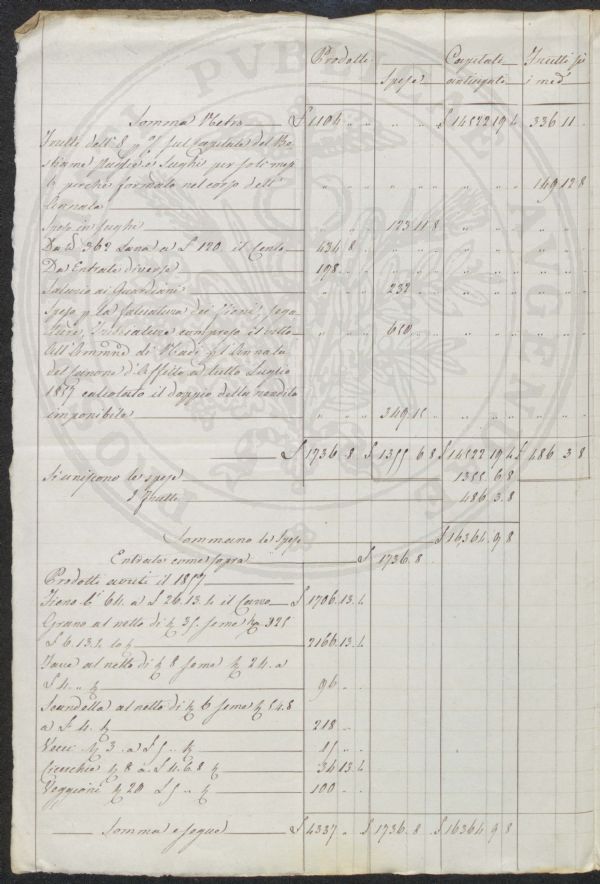 Prodotti Capitali Frutti sù
Spese anticipati i med.
Somma Retro £ 1104 " " " " " £ 14522 19 4 336 11 "
Frutti dell' 8 p % sul Capitale del Be
stiame
perche formato nel corso dell' " " " " " " " " " 149 12 8
Annata
Spese in funghi " " " 123 11 8 " " " " " "
Da lb 362 Lana a £ 120 il Cento 434 8 " " " " " " " " " "
Da Entrate diverse 198 " " " " " " " " " " "
Salario ai Guardiani " " " 232 " " " " " " " "
Spese p la falciatura dei Fieni, sega
tura, Trebiatura compreso il vitto " " " 650 " " " " " " " "
All' di p l'Annata
del canone d'Affitto a tutto Luglio
1857 calcolato il doppio della rendita
imponibile " " " 349 15 " " " " " " "
£ 1736 8 £ 1355 6 8 £ 14522 19 4 £ 486 3 8
Si uniscono le spese 1355 6 8
I Frutti 486 3 8
Sommano le Spese £ 16364 9 8
Entrate come sopra £ 1736 8 "
Prodotti avuti il 1857
Fieno C° 64 a £ 26.13.4 il Carro £ 1706.13.4
Grano al netto di 35 seme 325
£ 6.13.4 2166.13.4
Fave al netto di 8 seme 24. a
£ 4 " " 96 " "
Scandella al netto di 6 seme 54.8
a £ 4. 218 " "
3 a £ 5 " " 15 " "
Cicerchia 8 a £ 4.6.8 34 13.4
Veggioni 20 £ 5 " " 100 " "
Somma e segue £ 4337 " £ 1736.8 £ 16364 9 8
PUBLICAE AUGENDO